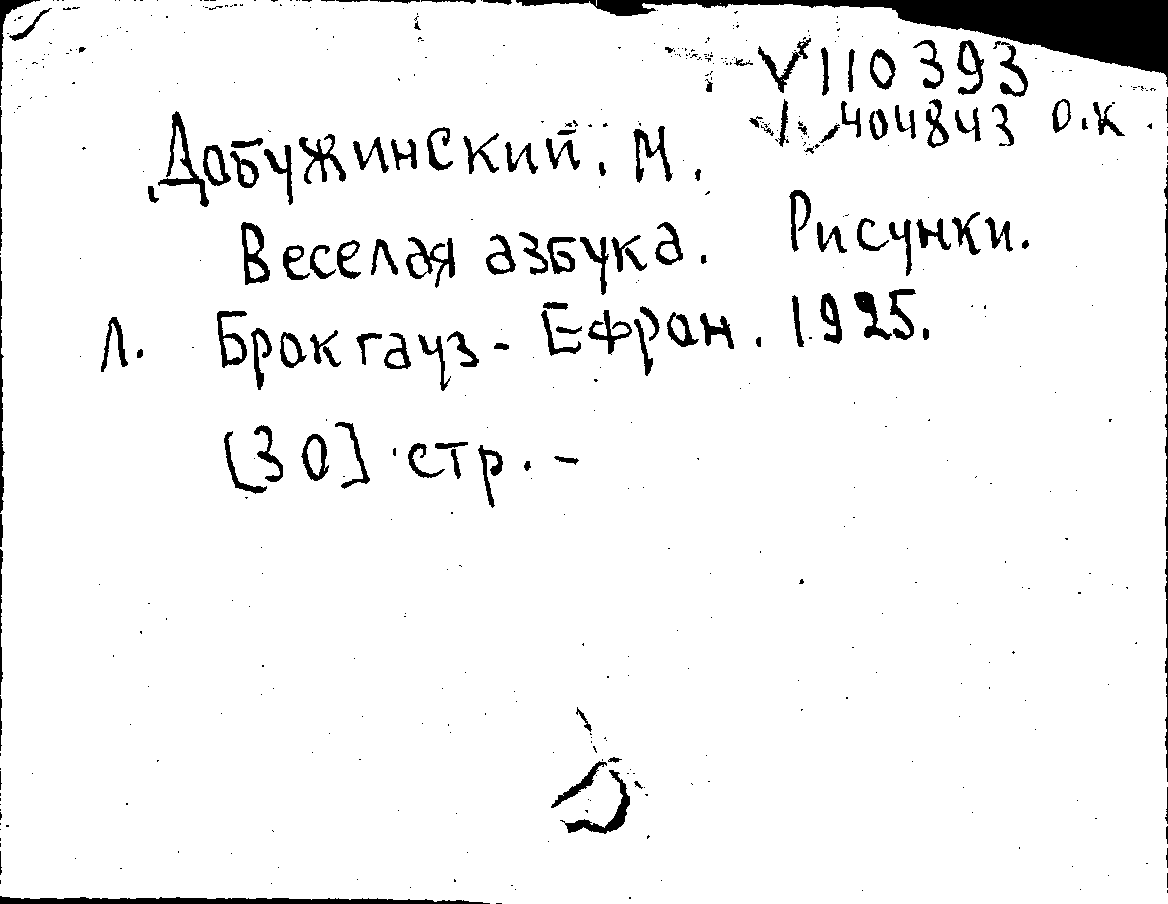 V110393
V 404843 о.к.
Добужинский. М.
Веселая азбука. Рисунки.
Л. Брокгауз-Ефрон. 1925.
[30] стр. -